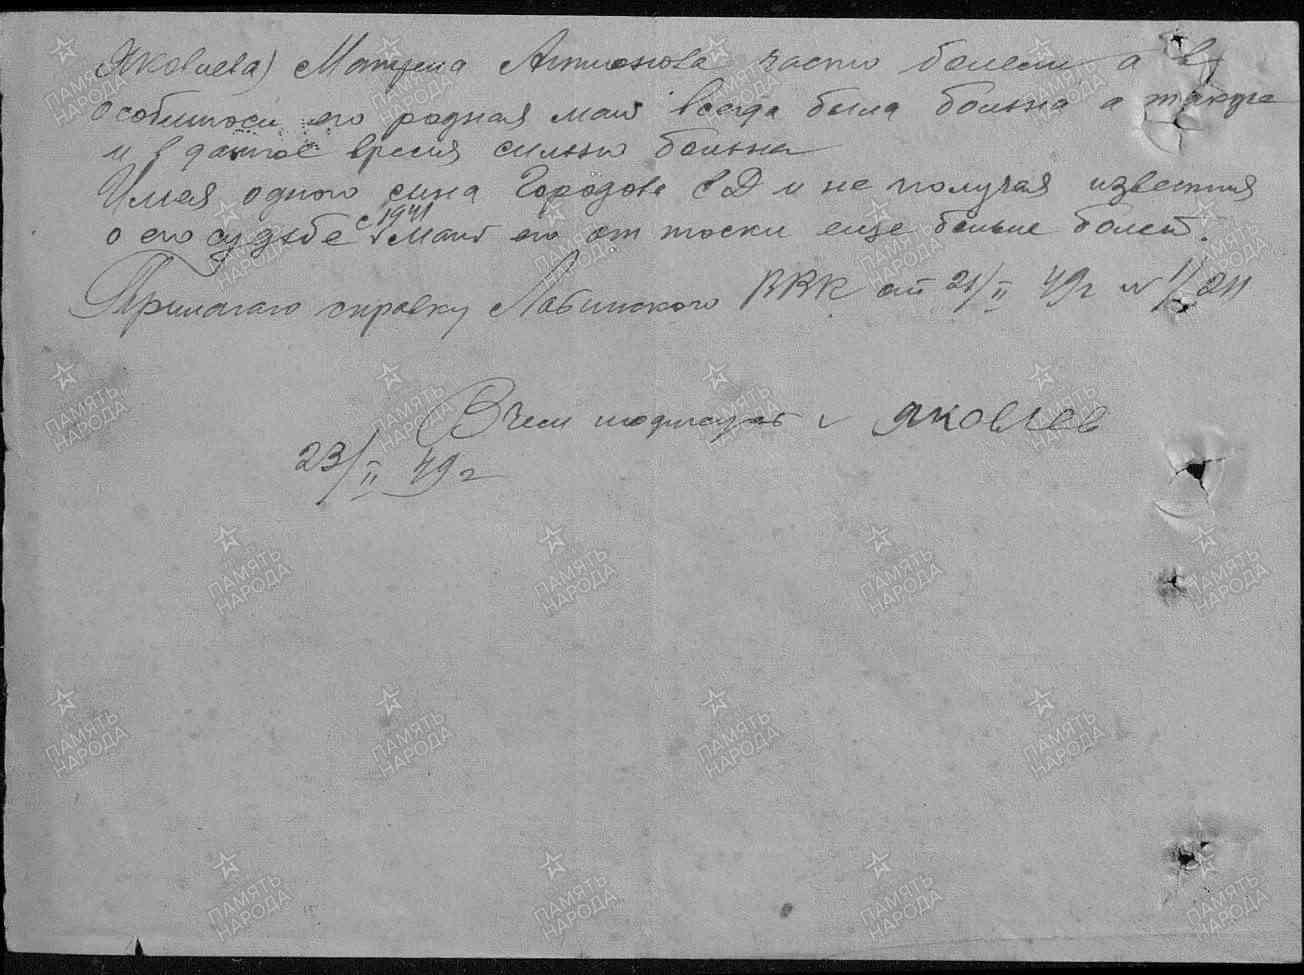 Яковлева) Матрена Антоновна часто болеет а в
особиности его родная мать всегда была больна а также
и в данное время сильно больна
Имея одного сина Городова В Д и не получая известия
о его судьбе с 1941 мать его от тоски еще больше болеет.
Прилагаю справку Лабинского РВК от 21/II 49г № 1/211
В чем подписуюсь Яковлев
23/II 49г
ПАМЯТЬ НАРОДА